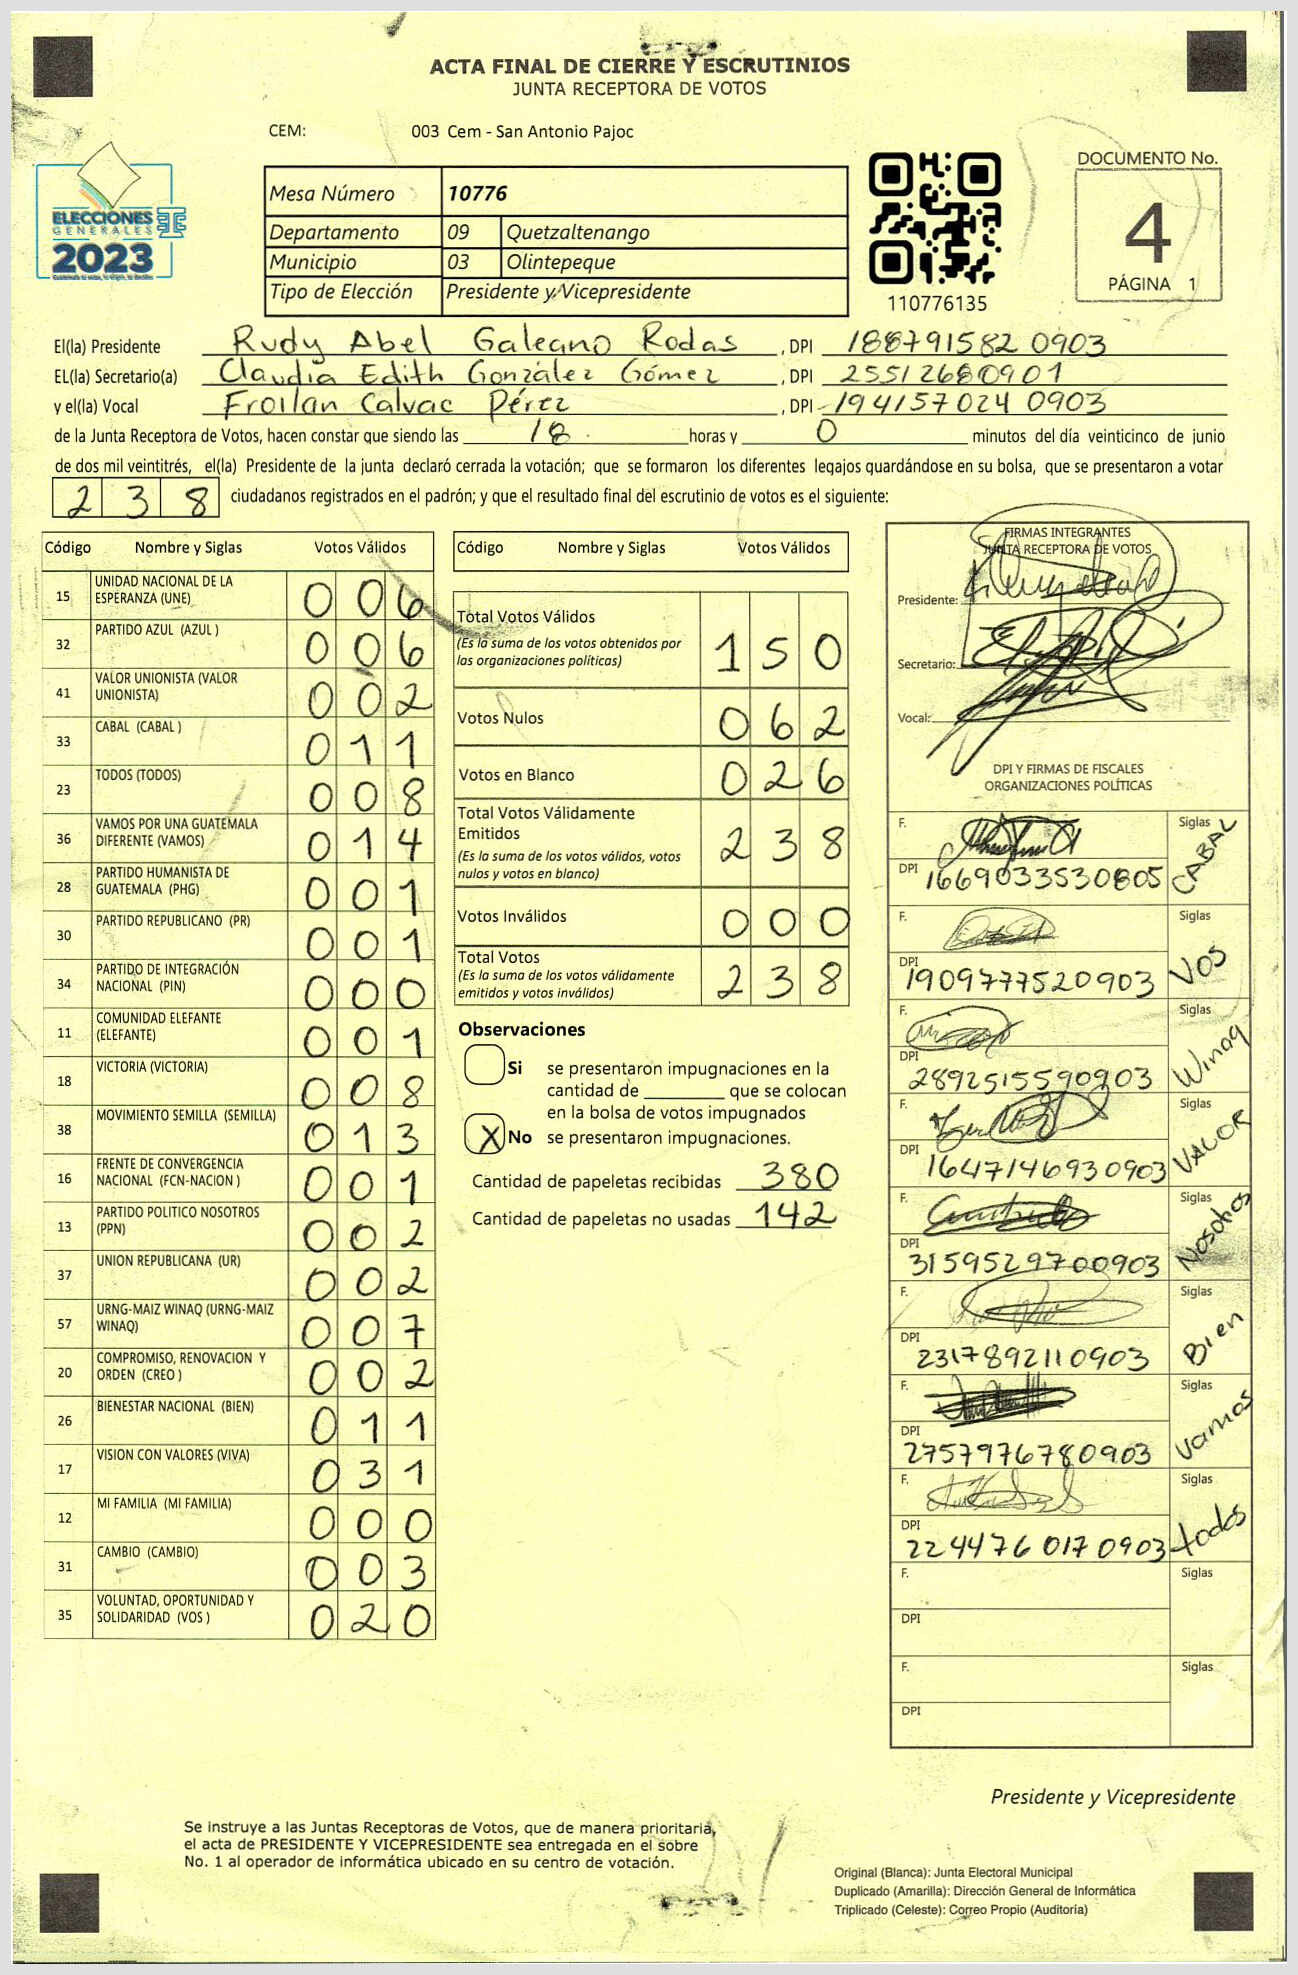 ACTA FINAL DE CIERRE Y ESCRUTINIOS
JUNTA RECEPTORA DE VOTOS
CEM: 003 Cem - San Antonio Pajoc
ELECCIONES
GENERALES
2023
Mesa Número 10776
Departamento 09 Quetzaltenango
Municipio 03 Olintepeque
Tipo de Elección Presidente y Vicepresidente
110776135
DOCUMENTO No.
4
PÁGINA 1
El(la) Presidente Rudy Abel Galeano Rodas , DPI 188791582 0903
EL(la) Secretario(a) Claudia Edith González Gómez , DPI 2551268090901
y el(la) Vocal Froilan Calvac Pérez , DPI 194157024 0903
de la Junta Receptora de Votos, hacen constar que siendo las 18 horas y 0 minutos del día veinticinco de junio
de dos mil veintitrés, el(la) Presidente de la junta declaró cerrada la votación; que se formaron los diferentes legajos guardándose en su bolsa, que se presentaron a votar
238 ciudadanos registrados en el padrón; y que el resultado final del escrutinio de votos es el siguiente:
Código Nombre y Siglas Votos Válidos
15 UNIDAD NACIONAL DE LA ESPERANZA (UNE) 006
32 PARTIDO AZUL (AZUL ) 006
41 VALOR UNIONISTA (VALOR UNIONISTA) 002
33 CABAL (CABAL ) 011
23 TODOS (TODOS) 008
36 VAMOS POR UNA GUATEMALA DIFERENTE (VAMOS) 014
28 PARTIDO HUMANISTA DE GUATEMALA (PHG) 001
30 PARTIDO REPUBLICANO (PR) 001
34 PARTIDO DE INTEGRACIÓN NACIONAL (PIN) 000
11 COMUNIDAD ELEFANTE (ELEFANTE) 001
18 VICTORIA (VICTORIA) 008
38 MOVIMIENTO SEMILLA (SEMILLA) 013
16 FRENTE DE CONVERGENCIA NACIONAL (FCN-NACION ) 001
13 PARTIDO POLITICO NOSOTROS (PPN) 002
37 UNION REPUBLICANA (UR) 002
57 URNG-MAIZ WINAQ (URNG-MAIZ WINAQ) 007
20 COMPROMISO, RENOVACION Y ORDEN (CREO ) 002
26 BIENESTAR NACIONAL (BIEN) 011
17 VISION CON VALORES (VIVA) 031
12 MI FAMILIA (MI FAMILIA) 000
31 CAMBIO (CAMBIO) 003
35 VOLUNTAD, OPORTUNIDAD Y SOLIDARIDAD (VOS ) 020
Código Nombre y Siglas Votos Válidos
Total Votos Válidos 150
(Es la suma de los votos obtenidos por
las organizaciones políticas)
Votos Nulos 062
Votos en Blanco 026
Total Votos Válidamente
Emitidos 238
(Es la suma de los votos válidos, votos
nulos y votos en blanco)
Votos Inválidos 000
Total Votos 238
(Es la suma de los votos válidamente
emitidos y votos inválidos)
Observaciones
Si se presentaron impugnaciones en la
cantidad de ________ que se colocan
en la bolsa de votos impugnados
X No se presentaron impugnaciones.
Cantidad de papeletas recibidas 380
Cantidad de papeletas no usadas 142
FIRMAS INTEGRANTES
JUNTA RECEPTORA DE VOTOS
Presidente:
Secretario:
Vocal:
DPI Y FIRMAS DE FISCALES
ORGANIZACIONES POLÍTICAS
F. Siglas CABAL
DPI 1669033530805
F. Siglas VOS
DPI 1909777520903
F. Siglas Winaq
DPI 2892515590903
F. Siglas VALOR
DPI 1647146930903
F. Siglas Nosotros
DPI 3159529700903
F. Siglas Bien
DPI 2317892110903
F. Siglas Vamos
DPI 2757976780903
F. Siglas todos
DPI 224476 017 0903
F. Siglas
DPI
F. Siglas
DPI
Presidente y Vicepresidente
Se instruye a las Juntas Receptoras de Votos, que de manera prioritaria,
el acta de PRESIDENTE Y VICEPRESIDENTE sea entregada en el sobre
No. 1 al operador de informática ubicado en su centro de votación.
Original (Blanca): Junta Electoral Municipal
Duplicado (Amarilla): Dirección General de Informática
Triplicado (Celeste): Correo Propio (Auditoría)